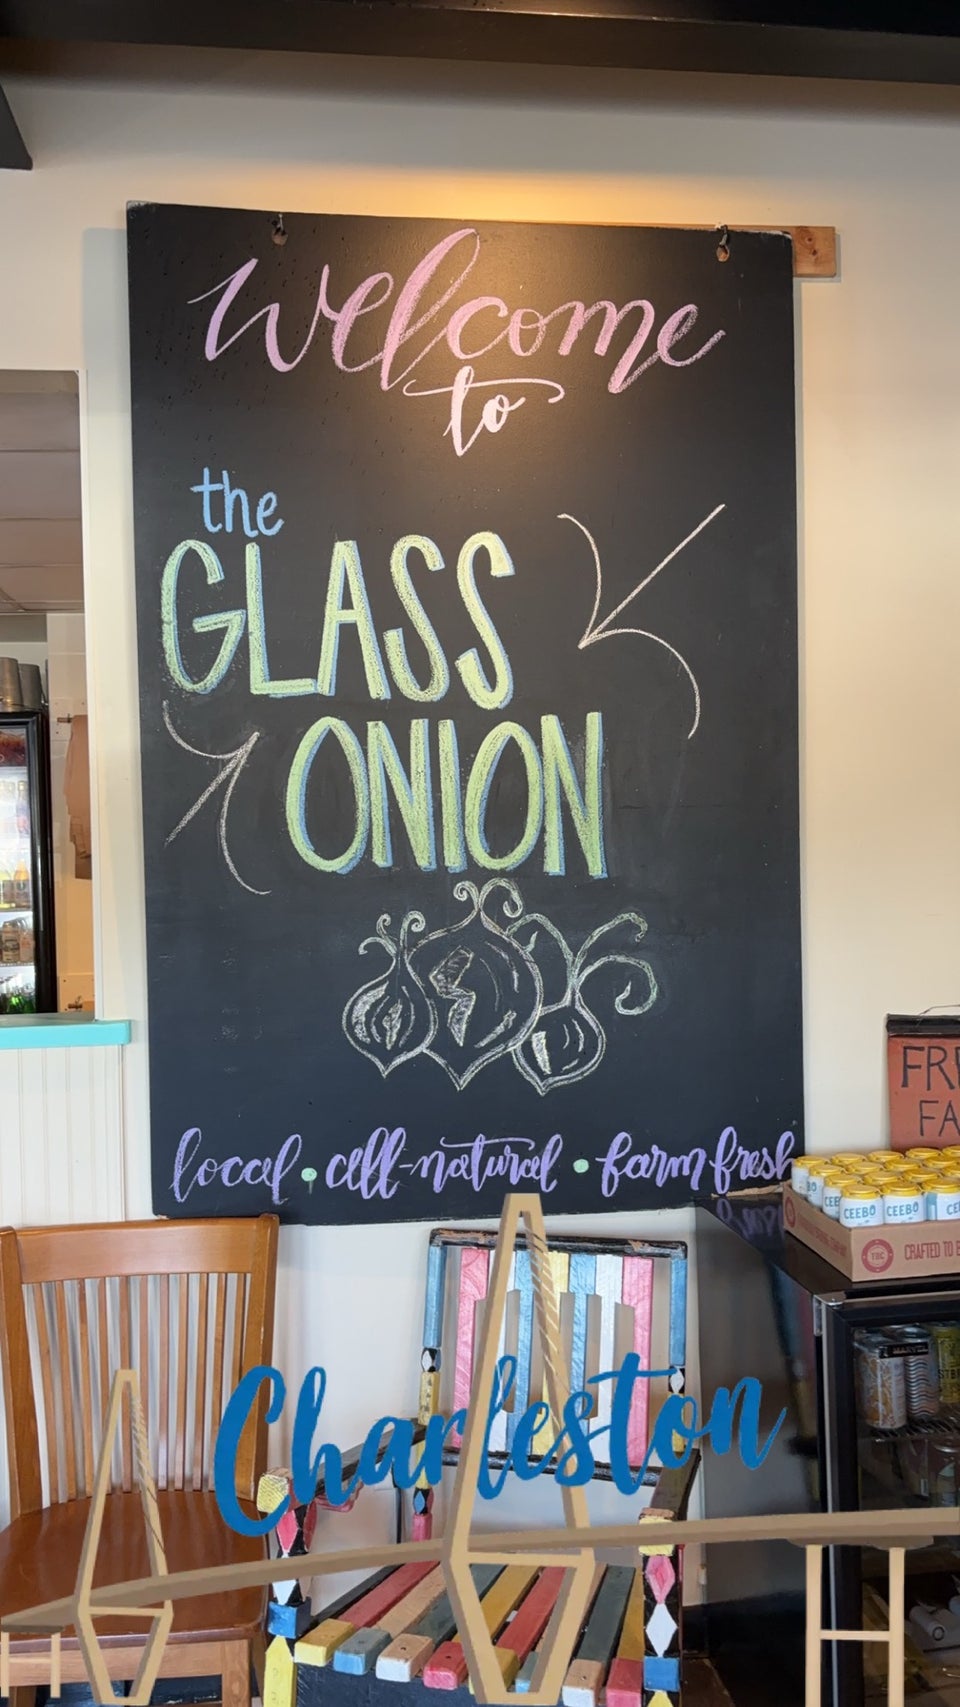 Welcome
to
the
GLASS
ONION
local • all-natural • farm fresh
CEEBO CEEBO
TBC
CRAFTED TO
Charleston